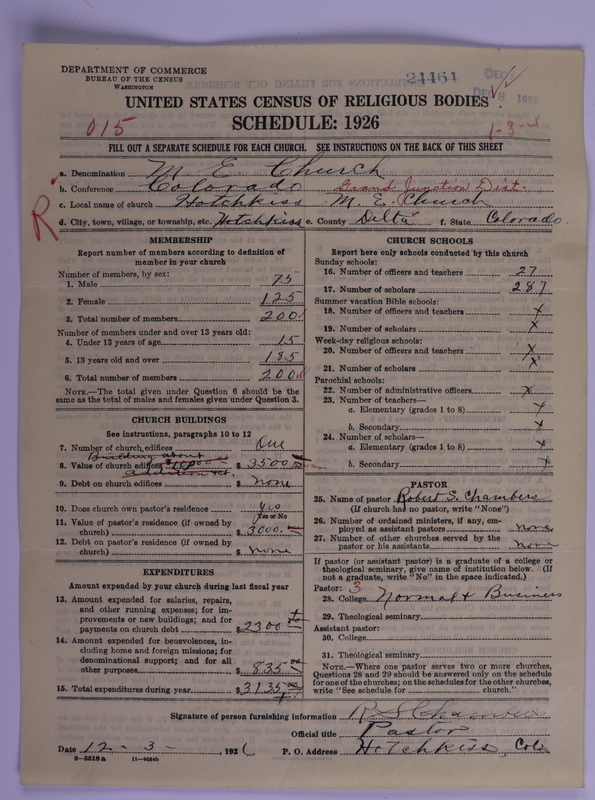 DEPARTMENT OF COMMERCE
BUREAU OF THE CENSUS
WASHINGTON
24464
DEC 8
UNITED STATES CENSUS OF RELIGIOUS BODIES
SCHEDULE: 1926
015
1-3-
FILL OUT A SEPARATE SCHEDULE FOR EACH CHURCH. SEE INSTRUCTIONS ON THE BACK OF THIS SHEET
R
a. Denomination M. E. Church
b. Conference Colorado Grand Junction Dist.
c. Local name of church Hotchkiss M. E. Church
d. City, town, village, or township, etc. Hotchkiss e. County Delta f. State Colorado
MEMBERSHIP
Report number of members according to definition of
member in your church
Number of members, by sex:
1. Male 75
2. Female 125
3. Total number of members 200
Number of members under and over 13 years old:
4. Under 13 years of age 15
5. 13 years old and over 185
6. Total number of members 200
NOTE.—The total given under Question 6 should be the
same as the total of males and females given under Question 3.
CHURCH BUILDINGS
See instructions, paragraphs 10 to 12
7. Number of church edifices One
Building about
8. Value of church edifices $ 3500
9. Debt on church edifices $ none
10. Does church own pastor's residence yes
Yes or No
11. Value of pastor's residence (if owned by
church) $ 3000
12. Debt on pastor's residence (if owned by
church) $ none
EXPENDITURES
Amount expended by your church during last fiscal year
13. Amount expended for salaries, repairs,
and other running expenses; for im-
provements or new buildings; and for
payments on church debt $ 2300
14. Amount expended for benevolences, in-
cluding home and foreign missions; for
denominational support; and for all
other purposes $ 835
15. Total expenditures during year $ 3135
CHURCH SCHOOLS
Report here only schools conducted by this church
Sunday schools:
16. Number of officers and teachers 27
17. Number of scholars 287
Summer vacation Bible schools:
18. Number of officers and teachers x
19. Number of scholars x
Week-day religious schools:
20. Number of officers and teachers x
21. Number of scholars x
Parochial schools:
22. Number of administrative officers x
23. Number of teachers—
a. Elementary (grades 1 to 8) x
b. Secondary x
24. Number of scholars—
a. Elementary (grades 1 to 8) x
b. Secondary x
PASTOR
25. Name of pastor Robert S. Chambers
(If church had no pastor, write "None")
26. Number of ordained ministers, if any, em-
ployed as assistant pastors none
27. Number of other churches served by the
pastor or his assistants none
If pastor (or assistant pastor) is a graduate of a college or
theological seminary, give name of institution below. (If
not a graduate, write "No" in the space indicated.)
Pastor: 3
28. College Normal & Business
29. Theological seminary
Assistant pastor:
30. College
31. Theological seminary
NOTE.—Where one pastor serves two or more churches,
Questions 28 and 29 should be answered only on the schedule
for one of the churches; on the schedules for the other churches,
write "See schedule for church."
Signature of person furnishing information R S Chambers
Official title Pastor
Date 12 - 3 - , 1926 P. O. Address Hotchkiss, Colo
8—5518a 11—9264b